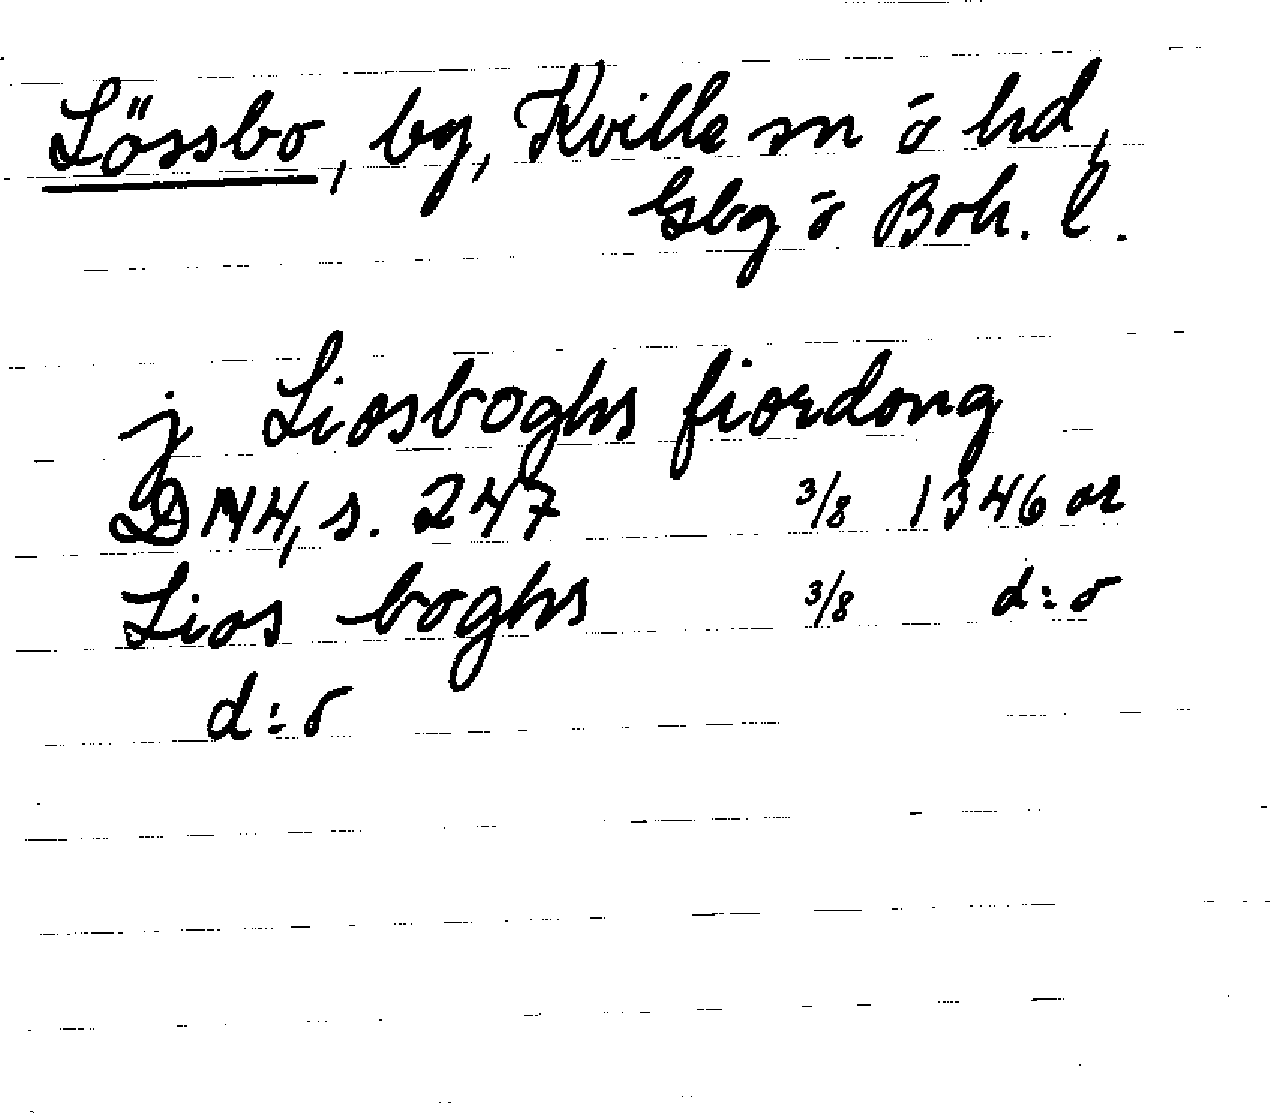 Lössbo, by, Kville sn o hd,
Gbg o Boh. l.
j Liosboghs fiordong
DN 4, s. 247 3/8 1346 or
Lios boghs 3/8 d:o
d:o